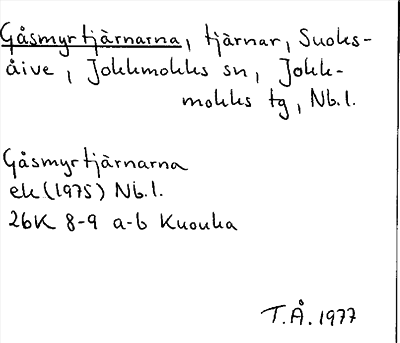 Gåsmyrtjärnarna, tjärnar, Suoks-
åive, Jokkmokks sn, Jokk-
mokks tg, Nb.l.
Gåsmyrtjärnarna
ek (1975) Nb.l.
26K 8-9 a-b Kuouka
T.Å. 1977